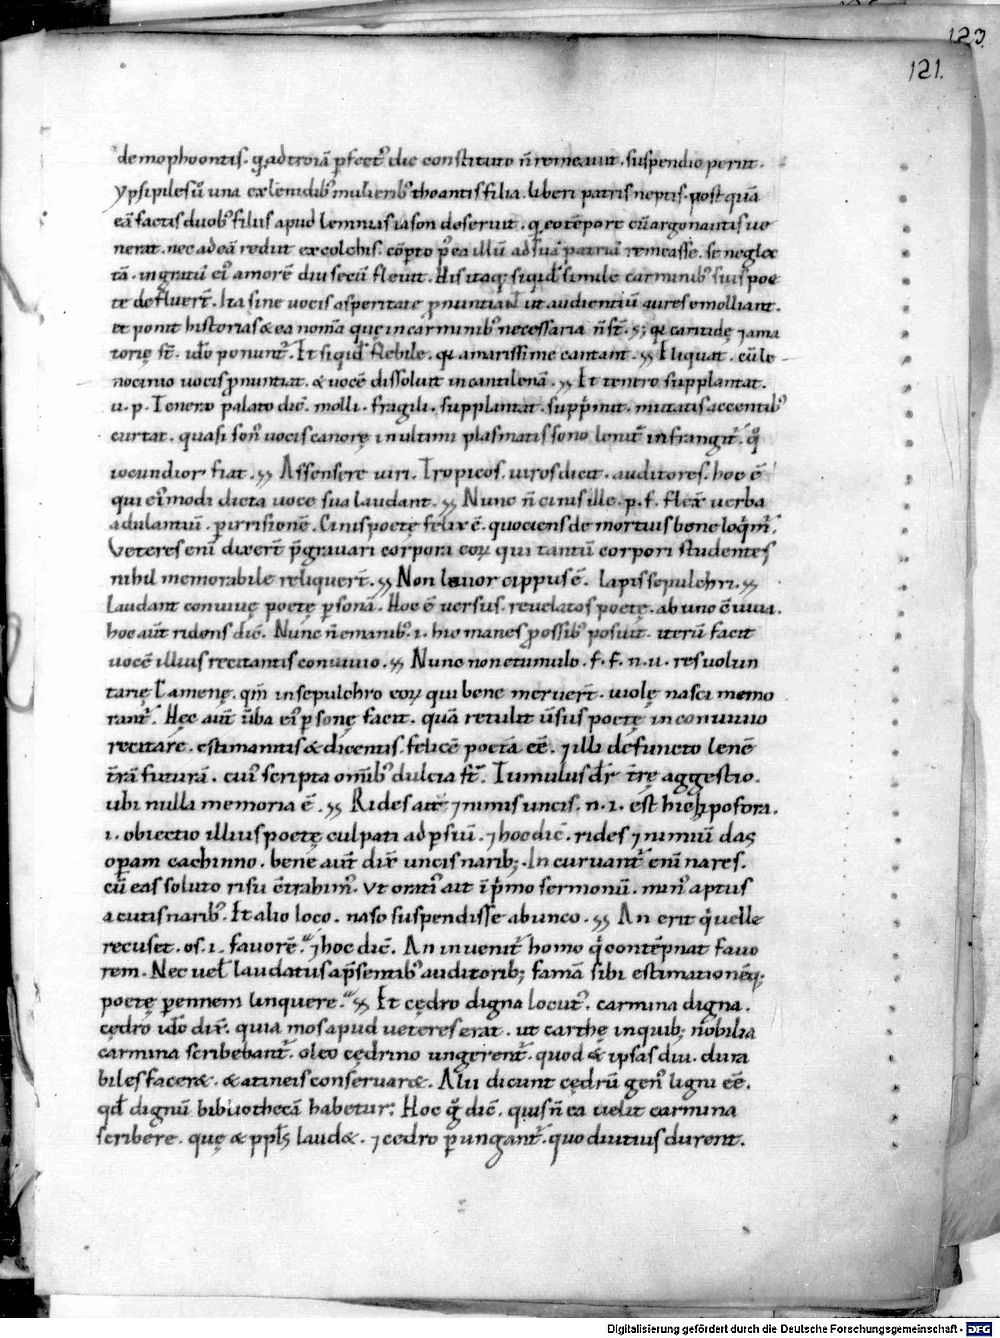 123.
121.
demophoontis. q̨ ad troiā ꝑfect᷒ die constituto n̄ remeauit. suspendio periit.
ypsipiles ū una ex lemnidib᷒ mulierib᷒ thoantis filia. liberi patris neptis. post quā
eā factis duob᷒ filiis apud lemnius iason deseruit. q eo tēpore cū argonautis ue
nerat. nec ad eā rediit ex colchis. cōpto ꝑ ea illū ad suā patriā remeasse. se neglec
tā. ingratū ei᷒ amorē diu secū fleuit. His itaq; siquid simile carminib᷒ suis poe
te defluert̄. Ita sine uocis asperitate ꝓnuntiant ut audientiū aures emolliant.
et ponit historias & ea nomīa quę in carminib᷒ necessaria n̄ st̄. s; qa caritudę ⁊ ama
torię st̄. ido ponunt᷒. Et siquid flebile. qd amarissime cantant. Eliquat. cū le
nocinio uocis ꝓnuntiat. & uocē dissoluit in cantilenā. Et tenero supplantat.
u. p. Tenero palato dic̄. molli. fragili. supplantat. supp̄mit. mutatis accentib᷒
curtat. quasi son᷒ uocis canorę in ultimi plasmatis sono lenit᷒ infrangit᷒. qo
iocundior fiat. Assensere uiri. Tropicos. uiros dicit. auditores. hoc ē
qui ei᷒modi dicta uoce sua laudant. Nunc n̄ cinis ille. p. f. flex̄ uerba
adulantiū. ꝑ irrisionē. Cinis poetę felix ē. quociens de mortuis bene loqmr᷒.
Veteres enī dixert̄ p̄grauari corpora eoꝝ qui tantū corpori studentes
nihil memorabile reliquert̄. Non leuior cippus ē. lapis sepulchri.
Laudant conuiuę poetę ꝑsonā. Hoc ē uersus. reuelatos poetę. ab uno ē uiui.
hoc aūt ridens dic̄. Nunc n̄ e manib᷒. i. hio manes ꝓ ossib᷒ posuit. iterū facit
uocē illius recitantis conuiuio. Nunc non e tumulo. f. f. n. u. res uolun
tarię Camenę. qm̄ in sepulchro eoꝝ qui bene meruert̄. uiolę nasci memo
rant᷒. Hęc aūt ūba ei᷒ ꝑsonę facit. quā retulit ūsus poetę in conuiuio
recitare. estimantis & dicentis. felicē poetā eē. ⁊ illi defuncto lenē
trā futurā. cui᷒ scripta omīb᷒ dulcia st̄. Tumulus dr̄ trę aggestio.
ubi nulla memoria ē. Rides ait ⁊ nimis uncis. n. i. est hic ypofora.
i. obiectio illius poetę culpati ad ꝑsiū. ⁊ hoc dic̄. rides ⁊ nimiū das
opam cachinno. bene aūt dix̄ uncis narib;. In curuant᷒ enī nares.
cū eas soluto risu ētrahim᷒. Vt orati᷒ ait ī p̄mo sermonū. min᷒ aptus
acutis narib᷒. Et alio loco. naso suspendisse abunco. An erit qi uelle
recuset. os. i. fauorē. ⁊ hoc dic̄. An inuenit᷒ homo qi contēpnat fauo
rem. Nec uel laudatus a p̄sentib᷒ auditorib; famā sibi estimationēq;
poetę ꝑennem linquere. Et cędro digna locut᷒. carmina digna.
cędro ido dix̄. quia mos apud ueteres erat. ut carthę in quib; nobilia
carmina scribebant᷒. oleo cędrino ungerent᷒. quod & ipsas diu. dura
biles facer&. & a tineis conseruar&. Alii dicunt cędrū gen᷒ ligni eē.
qd dignū bibliothecā habetur. Hoc g̊ dic̄. quis n̄ ea uelit carmina
scribere. quę & ppls̄ laud&. ⁊ cedro ꝑungant᷒. quo diutius durent.
Digitalisierung gefördert durch die Deutsche Forschungsgemeinschaft - DFG